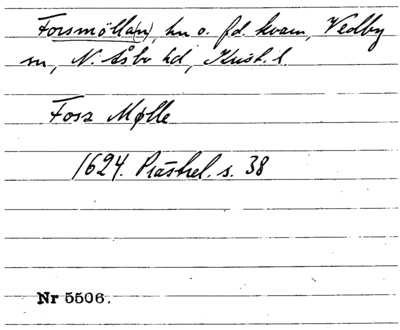 Forsmölla(n), hn o. f.d. kvarn, Vedby
sn, N. Åsbo hd, Krist. l.
Forsz Mølle
1624. Prästrel. s. 38
Nr 5506.